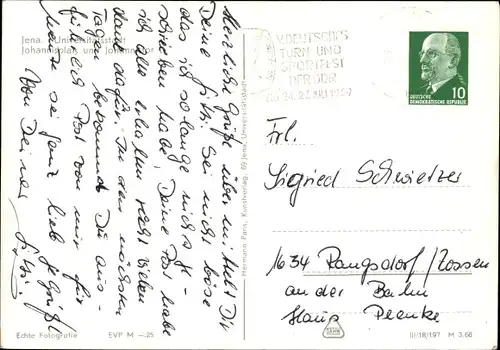 Jena. Universitätsstadt
Johannisplatz und Johannistor
Herzliche Grüße übermittelt Dir
Deine Sitti. Sei nicht böse
das ich so lange nicht ge-
schrieben habe, Deine Post habe
ich alle erhalten recht vielen
dank dafür. In den nächsten
Tagen bekommst Du aus-
führlich Post von mir. Für
heute sei ganz lieb gegrüßt
von Deiner Sitti.
Hermann Paris, Kunstverlag, 69 Jena, Universitätsstadt
V. DEUTSCHES
TURN UND
SPORTFEST
DER DDR
24. 27. JULI 1969
10
DEUTSCHE
DEMOKRATISCHE REPUBLIK
Frl.
Sigried Schwietzer
1634 Rangsdorf/Zossen
an der Bahn
Haus
Echte Fotografie EVP M –.25
III/18/197 M 3.68